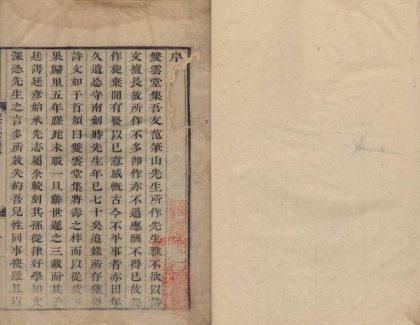 序
雙雲堂集吾友范筆山先生所作先生雅不欲以詩
文擅長故所作不多卽作亦不過應酬不得已故所
作旋棄間有裒以己意感慨古今不平事者亦因年
久遺忘守南劍時先生年已七十矣追錄所存僅得
詩文如干首顏曰雙雲堂集將壽之梓而以從政不
果歸里五年蹉跎未暇一旦辭世遲之三載而其子
廷諤廷彥始承先志屬余較刻其孫從律好學知文
深恐先生之言多所放失約吾兒性同事搜羅且以